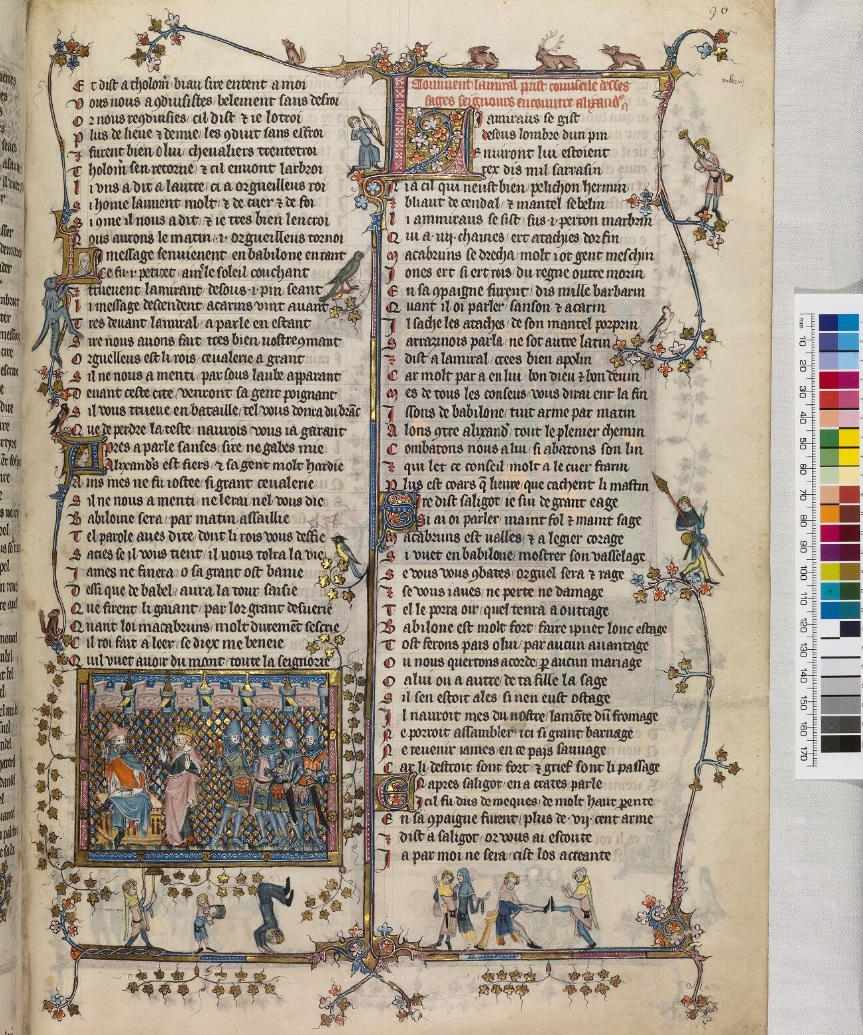 90
E t dist a tholom biau sire entent a moi
V ous nous aqduisistes belement sans desroi
O r nous reqduisies cil dist ⁊ ie lotroi
P lus de lieue ⁊ demie les qduit sans effroi
⁊ furent bien o lui cheualiers trente troi
T holom sen retorne ⁊ cil en vont larbroi
L i vns a dit a lautre ci a orgueilleus roi
S i home laument molt ⁊ de cuer ⁊ de foi
S i ome il nous a dit ⁊ ie tres bien len croi
N ous aurons le matin .i. orgueilleus tornoi
L i message sen vienent en babilone en rant
Ce fu .i. petitet ains le soleil couchant
⁊ trueuent lamirant desous .i. pin seant
L i message descendent acarins vint auant
T res deuant lamiral a parle en estant
S ire nous auons fait tres bien uostre 9mant
O rguelleus est li rois ceualerie a grant
S il ne nous a menti par sous laube apparant
D euant ceste cite venront sa gent poignant
S il vous trueue en bataille tel vous donra du branc
Q ue de perdre la teste naurois vous ia garant
A pres a parle sanses sire ne gabes mie
Alixandres est fiers ⁊ sa gent molt hardie
A ins mes ne fu iostee si grant ceualerie
S il ne nous a menti ne lerai nel vous die
B abiloine sera par matin assaillie
T el parole aues dite dont li rois vous deffie
S acies se il vous tient il uous tolra la vie
J ames ne finera o sa grant ost banie
D essi que de babel aura la tour saisie
Q ue firent li gaiant par lor grant desuerie
Q uant loi macabruns molt durement sescrie
C il roi fait a loer se diex me beneie
Q ui vuet auoir du mont toute la seignorie
Comment lamiral prist conseil a de ses
sages seignours encontre alixand'
L i amiraus se gist
desous lombre dun pin
E nuiron lui estoient
tex dis mil sarrasin
N i a cil qui neust bien pelichon hermin
⁊ bliaut de cendal ⁊ mantel sebelin
L i ammiraus se sist sus .i. perron marbrin
Q ui a .iiij. chaines ert atachies dor fin
M acabruns se drecha molt i ot gent meschin
J ones ert si ert rois du regne outre morin
E n sa 9paigne furent dis mille barbarin
Q uant il oi parler sanson ⁊ acarin
I l sache les ataches de son mantel porprin
S arrazinois parla ne sot autre latin
⁊ dist a lamiral crees bien apolin
C ar molt par a en lui bon dieu ⁊ bon deuin
M es de tous les conseus vous dirai ent la fin
I ssons de babilone tuit arme par matin
A lons 9tre alixand' tout le plenier chemin
C ombatons nous a lui si abatons son lin
⁊ qui let ce conseil molt a le cuer frarin
P lus est coars q lieure que cachent li mastin
S ire dist saligot ie sui de grant eage
Si ai oi parler maint fol ⁊ maint sage
M acabruns est uasles ⁊ a legier corage
S i vuet en babilone mostrer son vasselage
S e vous vous 9bates orguel sera ⁊ rage
⁊ se vous iaues ne perte ne damage
T el le porra oir quel tenra a outrage
B abilone est molt fort faire i puet lonc estage
T ost ferons pais o lui par aucun auantage
O u nous querrons acorde p aucun mariage
O a lui ou a autre de ta fille la sage
S il sen estoit ales si nen eust ostage
I l nauroit mes du nostre lamonte dun fromage
N e porroit assambler ici si grant barnage
N e reuenir iames en ce pais sauuage
C ar li destroit sont fort ⁊ grief sont li passage
E n apres saligot en a crates parle
Icil fu dus de meques de molt haut parente
E n sa 9paigne furent plus de .vij. cent arme
⁊ dist a saligot or vous ai escoute
J a par moi ne sera cist los acreante
mm 10 20 30 40 50 60 70 80 90 100 110 120 130 140 150 160 170